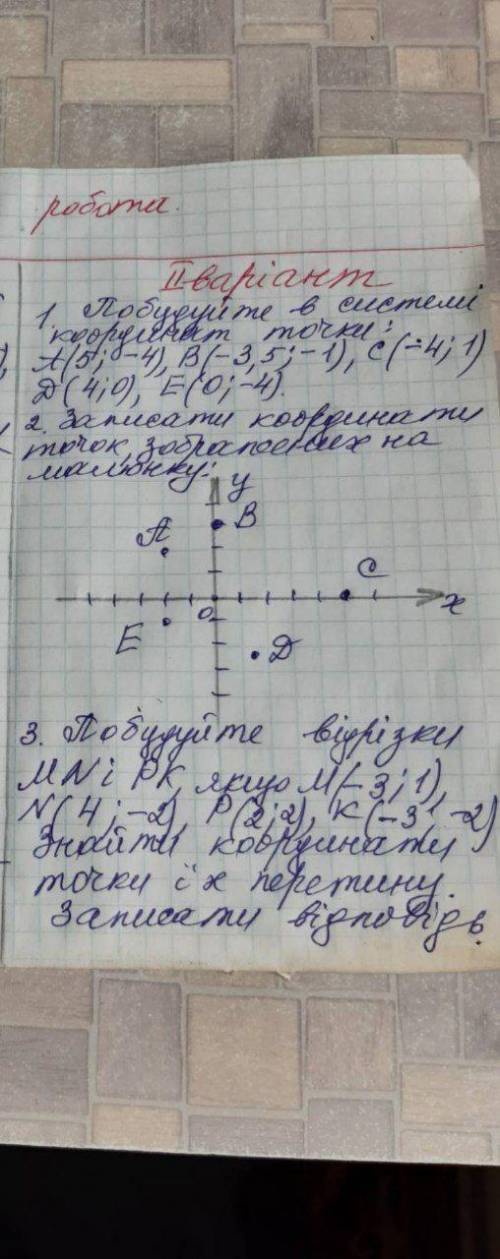 робота.
II-варіант
1 Побудуйте в системі
координат точки:
А(5; -4), В(-3,5; -1), С(-4; 1)
D(4; 0), Е(0; -4).
2. Записати координати
точок, зображених на
малюнку:
у
А В
С
0 х
Е D
3. Побудуйте відрізки
MN і РК, якщо М(-3; 1),
N(4; -2), Р(2; 2), К(-3; -2)
Знайти координати
точки їх перетину.
Записати відповідь.